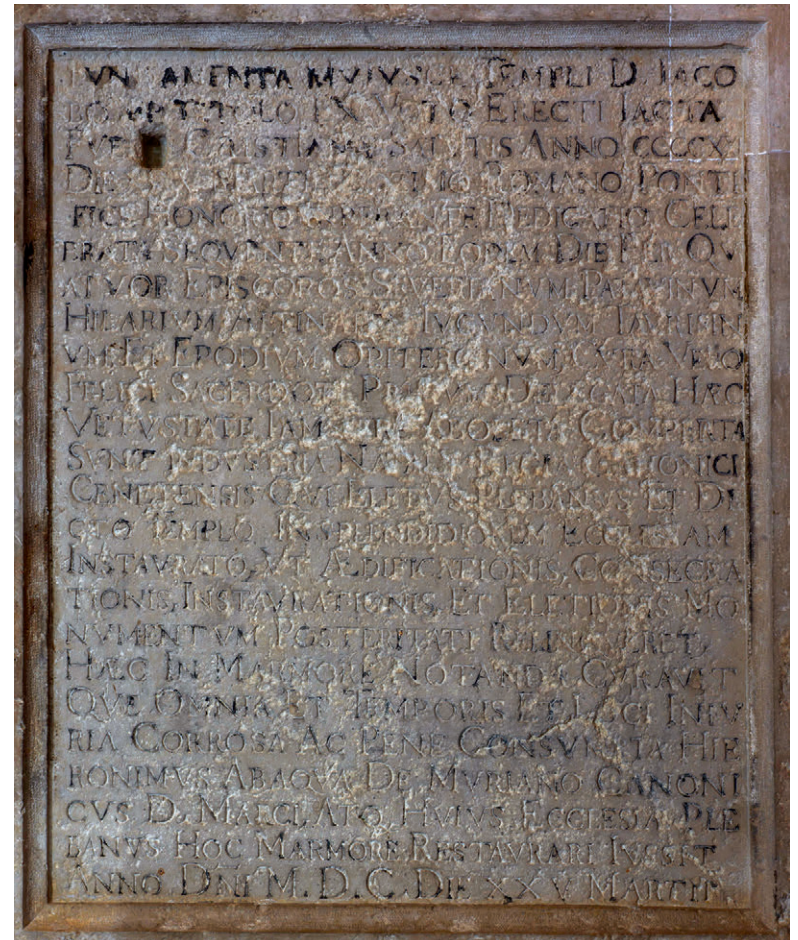 FVNDAMENTA HVIVSCE TEMPLI D. IACO
BO TITVLO EX VOTO ERECTI IACTA
CHRISTIANAE SALVTIS ANNO CCCCXXI
DIE MARTII ROMANO PONTI
FICE DEDICATIO CELE
BRATA SEQVENTI ANNO EODEM DIE PER QV
ATVOR EPISCOPOS SEVERIANVM PATAVINVM
HILARIVM ALTINATEM IVCVNDVM TARVISIN
VM ET EPODIVM OPITERGINVM CVRA VERO
FELICI SACERDOTI PRIMVM DELEGATA HAEC
VETVSTATE IAM FERE ABOLETA COMPERTA
SVNT INDVSTRIA CANONICI
CENETENSIS QVI ELETVS PLEBANVS ET DI
CTO TEMPLO IN SPLENDIDIOREM ECCLESIAM
INSTAVRATO, VT AEDIFICATIONIS, CONSECRA
TIONIS, INSTAVRATIONIS, ET ELETIONIS MO
NVMENTVM POSTERITATI RELINQVERET,
HAEC IN MARMORE NOTANDA CVRAVIT
QVE OMNIA ET TEMPORIS ET LOCI INIV
RIA CORROSA AC PENE CONSVMATA HIE
RONIMVS ABAQVA DE MVRIANO CANONI
CVS D. MARCI, ATQ. HVIVS ECCLESIAE PLE
BANVS HOC MARMORE RESTAVRARI IVSSIT
ANNO DNI M. D. C. DIE XXV MARTII